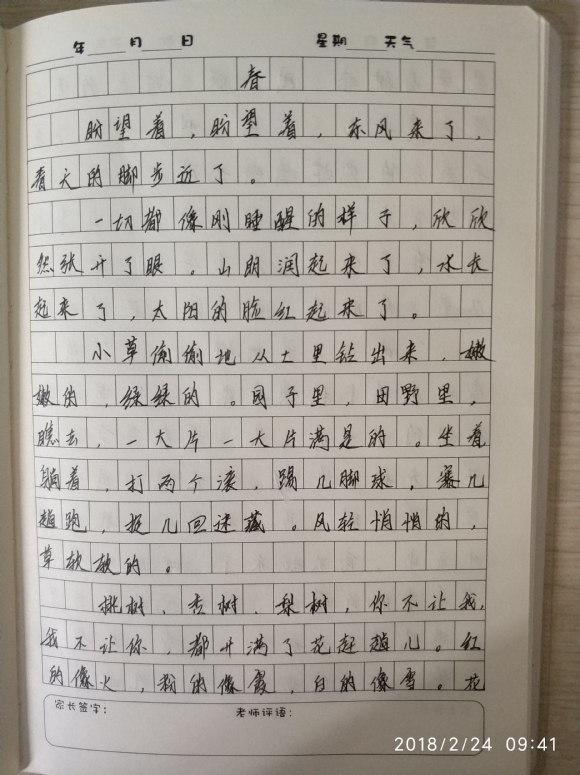 年 月 日 星期 天气
春
盼望着，盼望着，东风来了，
春天的脚步近了。
一切都像刚睡醒的样子，欣欣
然张开了眼。山朗润起来了，水长
起来了，太阳的脸红起来了。
小草偷偷地从土里钻出来，嫩
嫩的，绿绿的。园子里，田野里，
瞧去，一大片一大片满是的。坐着
躺着，打两个滚，踢几脚球，赛几
趟跑，捉几回迷藏。风轻悄悄的，
草软软的。
桃树、杏树、梨树，你不让我，
我不让你，都开满了花赶趟儿。红
的像火，粉的像霞，白的像雪。花
家长签字： 老师评语：
2018/2/24 09:41